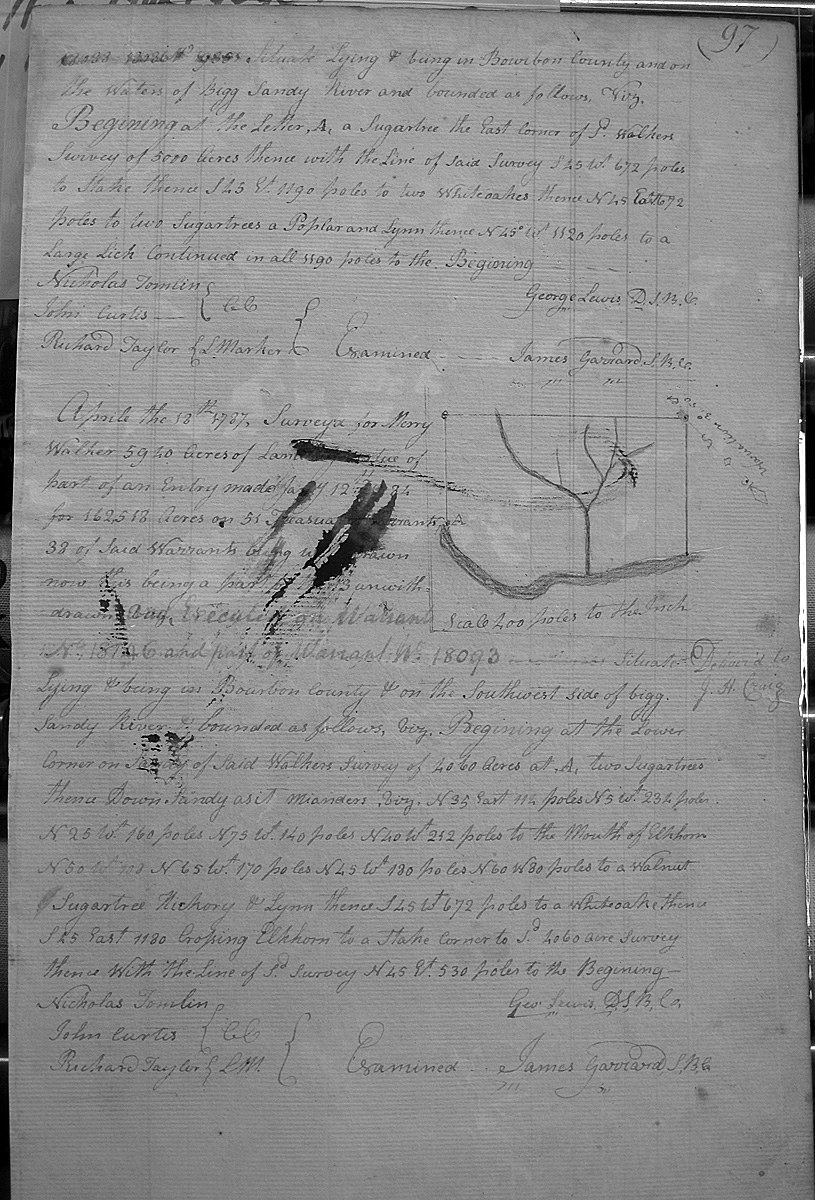 (97)
Situate Lying & being in Bourbon County and on
the Waters of Bigg Sandy River and bounded as follows, Viz.
Begining at the Letter, A, a Sugartree the East corner of Sd. Walkers
Survey of 5000 Acres thence with the Line of Said Survey S 45 Wt. 672 poles
to Stake thence S 45 Et. 1190 poles to two Whiteoakes thence N 45 East 672
poles to two Sugartrees a Poplar and Lynn thence N 45° Wt 1120 poles to a
Large Lick Continued in all 1190 poles to the Begining
Nicholas Tomlin
John Curtis
} C.C
George Lewis D.S.B.C.
Richard Taylor { L. Marker
Examined
James Garrard S.B.C.
Aprile the 18th 1787, Survey'd for Merry
Walker 5940 Acres of
of
part of an Entry made Jany 12th
for 162518 Acres on 51 Treasua
38 of Said Warrants
now this being a part
unwith
drawn
Warrant
and part
Warrant No. 18093
Situate
A
Scale 400 poles to the Inch
Deliver'd to
J. H. Craig
Lying & being in Bourbon County & on the Southwest side of bigg.
Sandy River & bounded as follows, Viz, Begining at the Lower
Corner on Sandy of Said Walkers Survey of 4060 Acres at, A, two Sugartrees
thence Down Sandy as it Mianders Viz, N 35 East 114 poles N 5 Wt. 234 poles
N 25 Wt. 160 poles N 75 Wt. 140 poles N 40 Wt 212 poles to the Mouth of Elkhorn
N 50 Wt N 65 Wt. 170 poles N 45 Wt 180 poles N 60 W 80 poles to a Walnut
Sugartree Hickory & Lynn thence S 45 Wt 672 poles to a Whiteoake thence
S 45 East 1180 Crossing Elkhorn to a Stake Corner to Sd 4060 acre Survey
thence With the Line of Sd Survey N 45 Et. 530 poles to the Begining
Nicholas Tomlin
John Curtis
} C.C
Geo. Lewis, D.S.B.Co.
Richard Taylor { L.M.
Examined
James Garrard, S.B.C